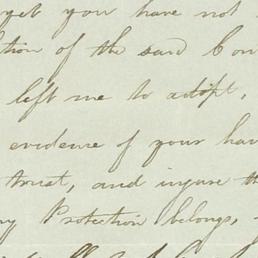 yet you have not
tion of the said Con
left me to adopt,
evidence of your hav
trust, and injure th
ny Protection belongs,